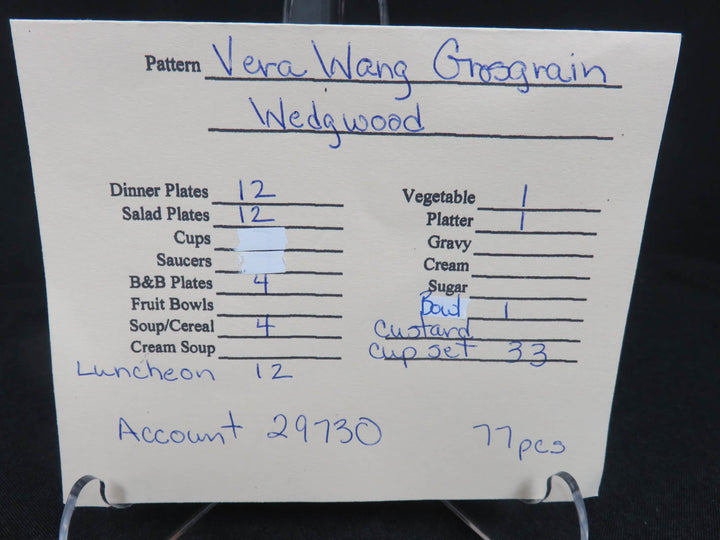 Pattern Vera Wang Grosgrain
Wedgwood
Dinner Plates 12
Salad Plates 12
Cups
Saucers
B&B Plates 4
Fruit Bowls
Soup/Cereal 4
Cream Soup
Luncheon 12
Vegetable 1
Platter 1
Gravy
Cream
Sugar
Bowl 1
Custard
Cup set 33
Account 29730
77pcs